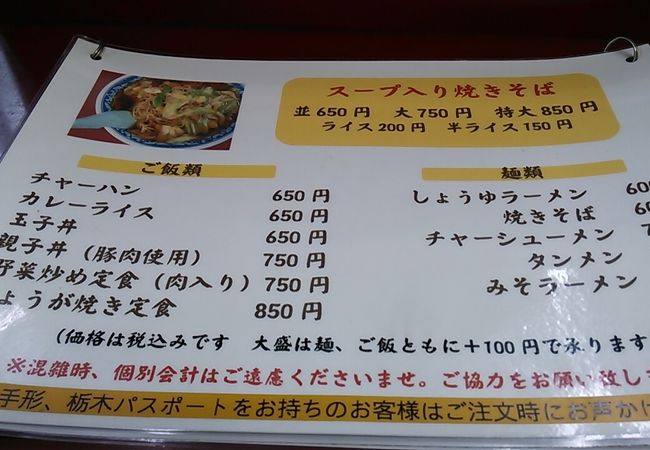 スープ入り焼きそば
並650円 大750円 特大850円
ライス200円 半ライス150円
ご飯類
チャーハン 650円
カレーライス 650円
玉子丼 650円
親子丼（豚肉使用） 750円
野菜炒め定食（肉入り） 750円
ょうが焼き定食 850円
麺類
しょうゆラーメン 60
焼きそば 6
チャーシューメン 7
タンメン
みそラーメン
（価格は税込みです 大盛は麺、ご飯ともに＋100円で承ります
※混雑時、個別会計はご遠慮くださいませ。ご協力をお願い致しま
手形、栃木パスポートをお持ちのお客様はご注文時にお声か